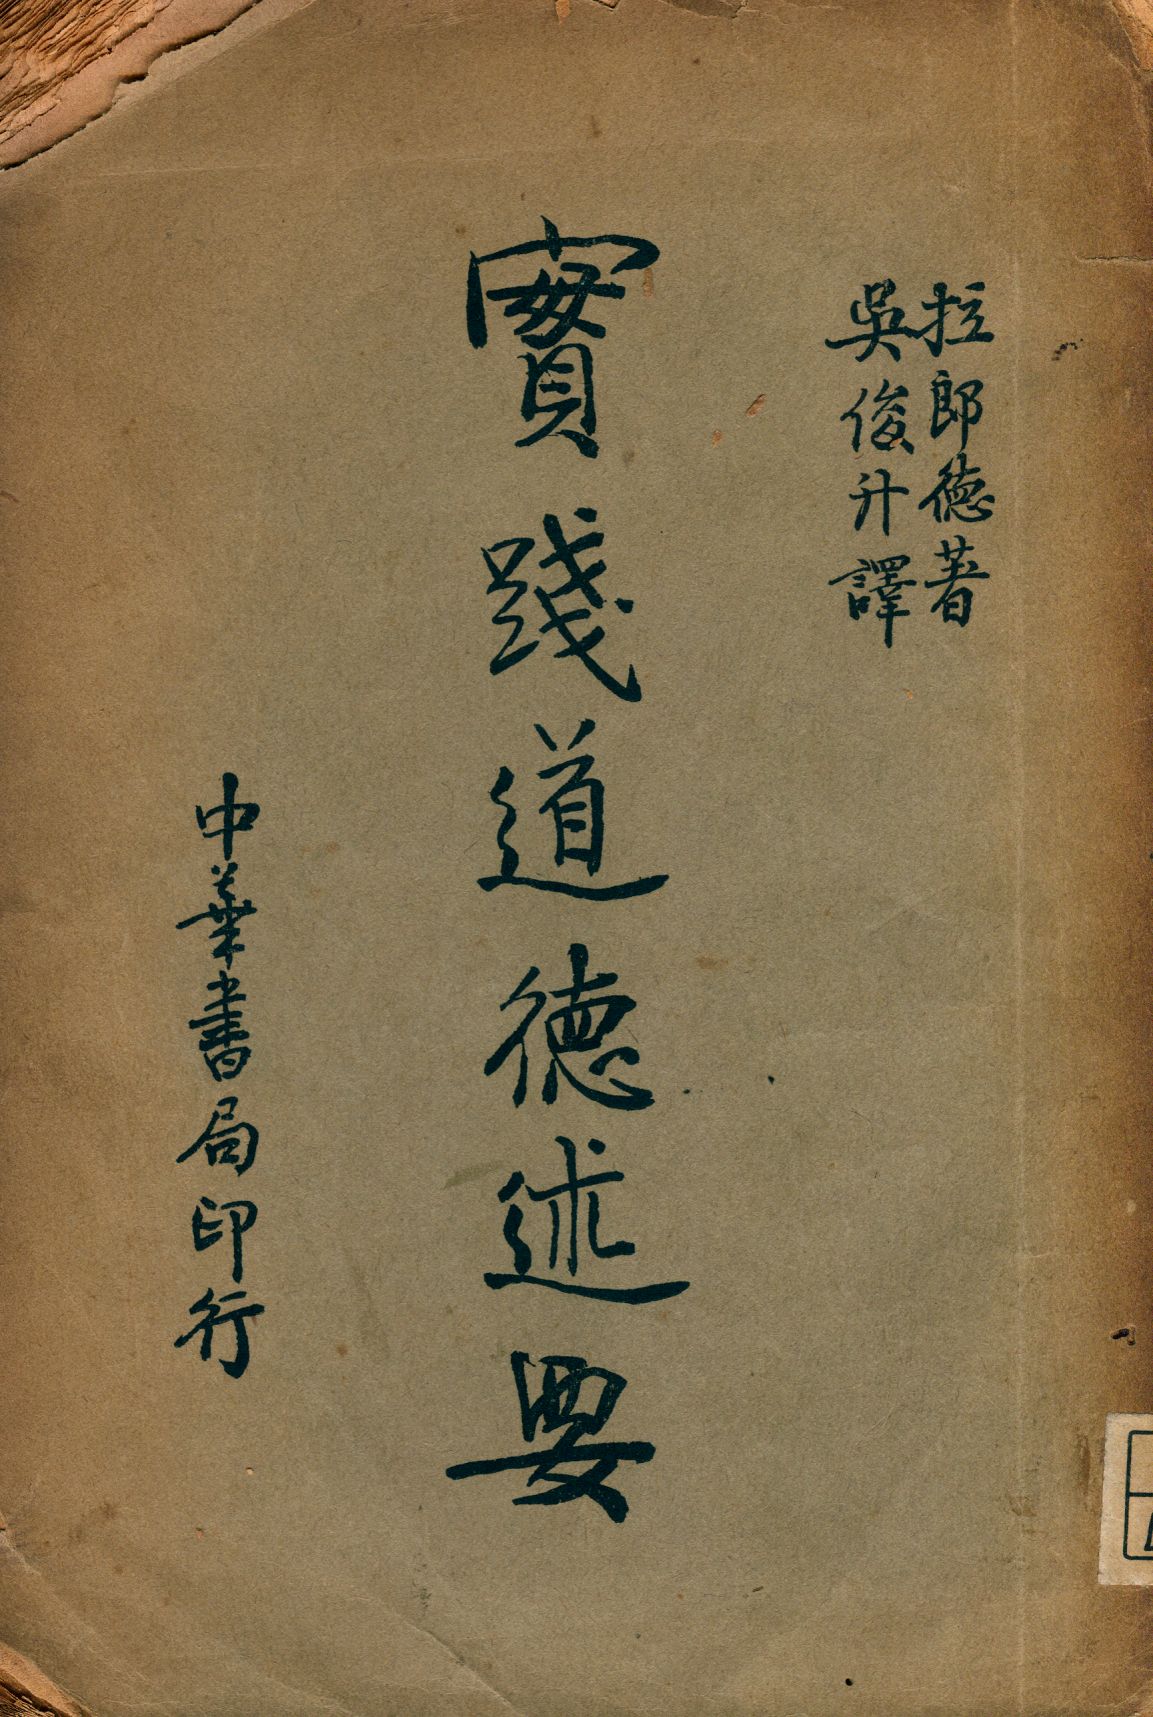 拉郎德著
吳俊升譯
實踐道德述要
中華書局印行